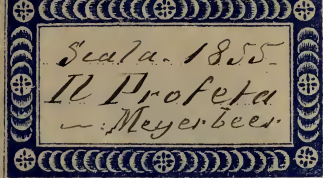 Scala. 1855.
Il Profeta
— Meyerbeer